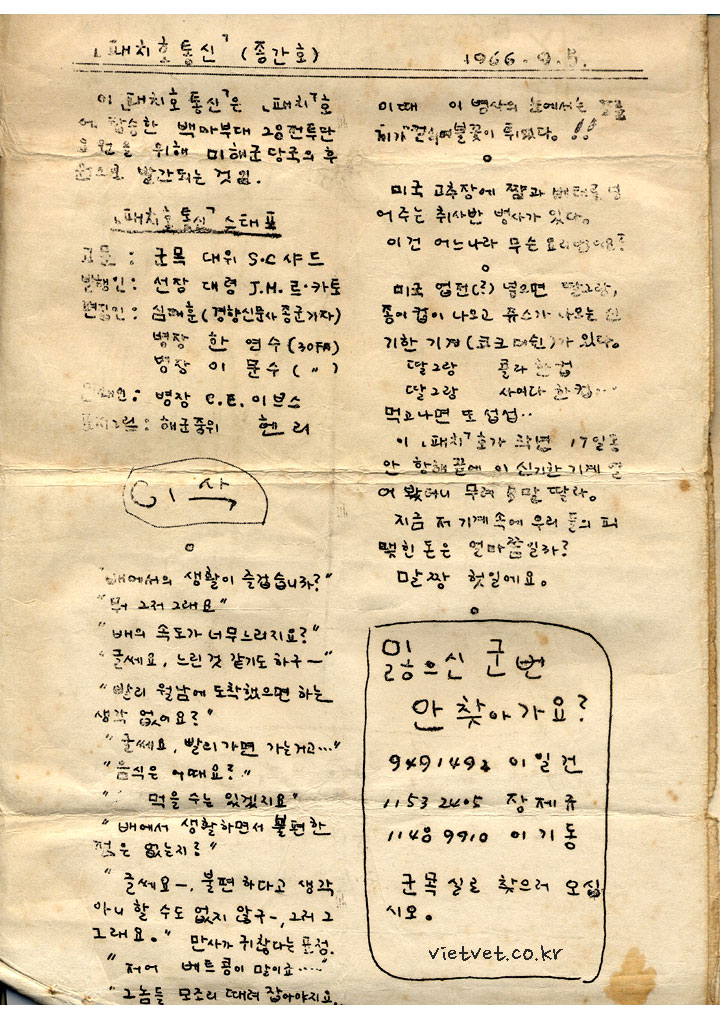 「패치호통신」(종간호) 1966.9.5.
이 「패치호통신」은 「패치」호
에 탑승한 백마부대 28전투단
을 위해 미해군당국의 후
원으로 발간되는 것임.
「패치호통신」 스태프
고문: 군목 대위 S.C 샤드
발행인: 선장 대령 J.M.르.카토
편집인: 심재훈(경향신문사종군기자)
병장 한연수(30
병장 이문수(〃)
병장 C.E.이브스
해군중위 헨리
GI 사
"배에서의 생활이 즐겁습니까?"
"뭐 그저 그래요"
"배의 속도가 너무느리지요?"
"글쎄요, 느린것 같기도 하구—"
"빨리 월남에 도착했으면 하는
생각 없어요?"
"글쎄요, 빨리가면 가는거고…"
"음식은 어때요?"
" 먹을 수는 있겠지요"
"배에서 생활하면서 불편한
점은 없는지?"
"글쎄요—, 불편하다고 생각
아니 할 수도 없지 않구—, 그저 그
그래요." 만사가 귀찮다는 표정.
"저어 베트콩이 말이죠……"
"그놈들 모조리 때려 잡아야지요.
이때 이 병사의 눈에서는
불꽃이 튀었다.!!
미국 고추장에 쨤과 빠터를
어주는 취사반 병사가 있다.
이건 어느나라 무슨 요리법이요?
미국 엽전(?) 넣으면 딸그랑,
종이컵이 나오고 쥬스가 나오는 신
기한 기계(코크머쉰)가 있다.
딸그랑 콜라 한컵
딸그랑 사이다 한컵…
먹고나면 또 섭섭..
이 「패치」호가 작년 17일동
안 항해끝에 이 신기한 기계 열
어 봤더니 무려 5말 딸라.
지금 저 기계속에 우리 들의 피
맺힌 돈은 얼마쯤일까?
말짱 헛일에요.
잃으신 군번
안 찾아가요?
9491492 이일건
11532405 장제쥬
11489910 이기동
군목실로 찾으러 오십
시오.
vietvet.co.kr